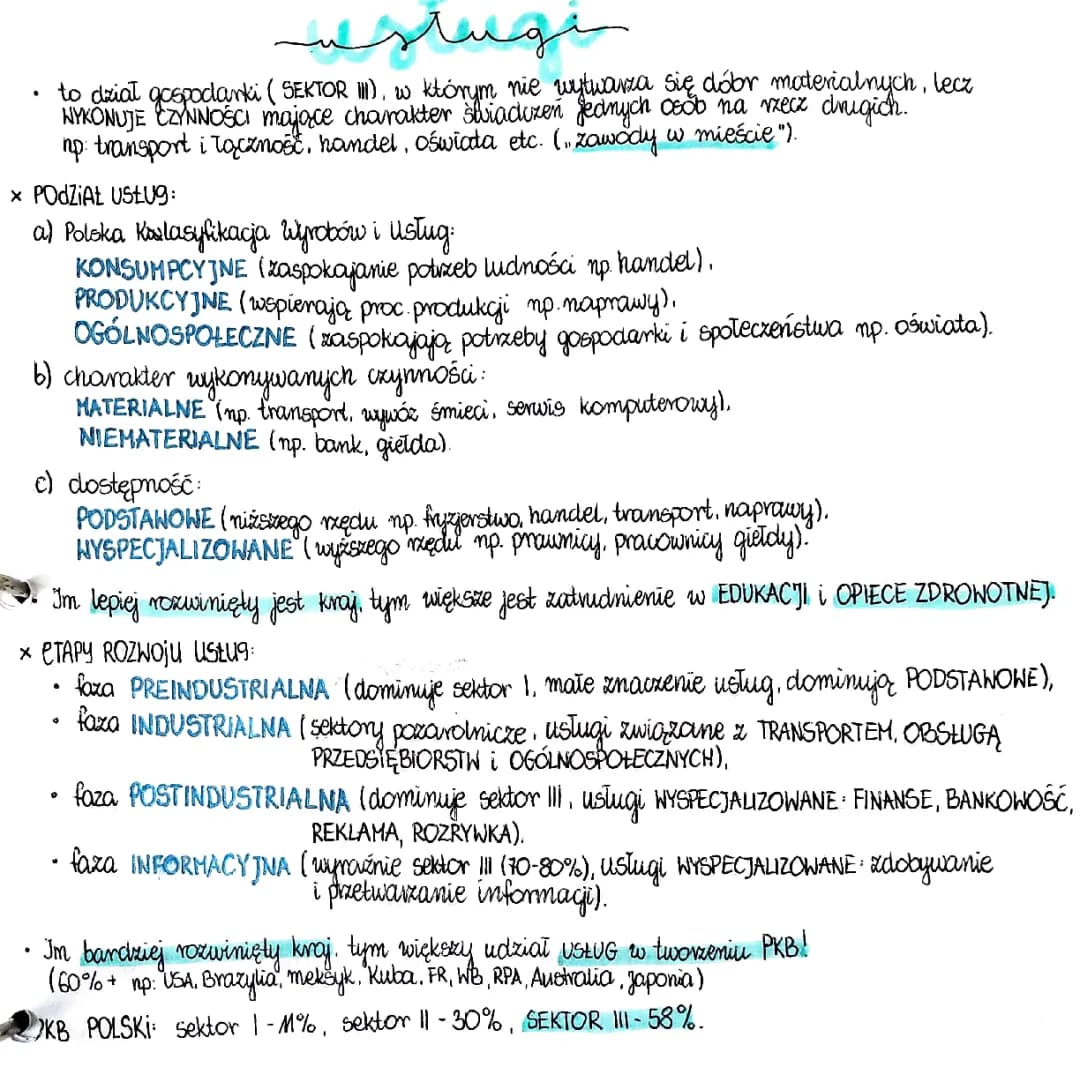 usługi
• to dział gospodarki (SEKTOR III), w którym nie wytwarza się dóbr materialnych, lecz
WYKONUJE CZYNNOŚCI mające charakter świadczeń jednych osób na rzecz drugich.
np: transport i łączność, handel, oświata etc. („zawody w mieście").
x PODZIAŁ USŁUG:
a) Polska Kaslasyfikacja Wyrobów i Usług:
KONSUMPCYJNE (zaspokajanie potrzeb ludności np. handel),
PRODUKCYJNE (wspierają proc. produkcji np. naprawy),
OGÓLNOSPOŁECZNE (zaspokajają potrzeby gospodarki i społeczeństwa np. oświata).
b) charakter wykonywanych czynności:
MATERIALNE (np. transport, wywóz śmieci, serwis komputerowy),
NIEMATERIALNE (np. bank, giełda).
c) dostępność:
PODSTAWOWE (niższego rzędu np. fryzjerstwo, handel, transport, naprawy),
WYSPECJALIZOWANE (wyższego rzędu np. prawnicy, pracownicy giełdy).
• Im lepiej rozwinięty jest kraj, tym większe jest zatrudnienie w EDUKACJI i OPIECE ZDROWOTNEJ.
x ETAPY ROZWOJU USŁUG:
• faza PREINDUSTRIALNA (dominuje sektor I, małe znaczenie usług, dominują PODSTAWOWE),
• faza INDUSTRIALNA (sektory pozarolnicze, usługi związane z TRANSPORTEM, OBSŁUGĄ
PRZEDSIĘBIORSTW i OGÓLNOSPOŁECZNYCH),
• faza POSTINDUSTRIALNA (dominuje sektor III, usługi WYSPECJALIZOWANE: FINANSE, BANKOWOŚĆ,
REKLAMA, ROZRYWKA).
• faza INFORMACYJNA (wyraźnie sektor III (70-80%), usługi WYSPECJALIZOWANE: zdobywanie
i przetwarzanie informacji).
• Im bardziej rozwinięty kraj, tym większy udział USŁUG w tworzeniu PKB!
(60%+ np: USA, Brazylia, Meksyk, Kuba, FR, WB, RPA, Australia, Japonia)
PKB POLSKI: sektor I - 11%, sektor II - 30%, SEKTOR III - 58%.